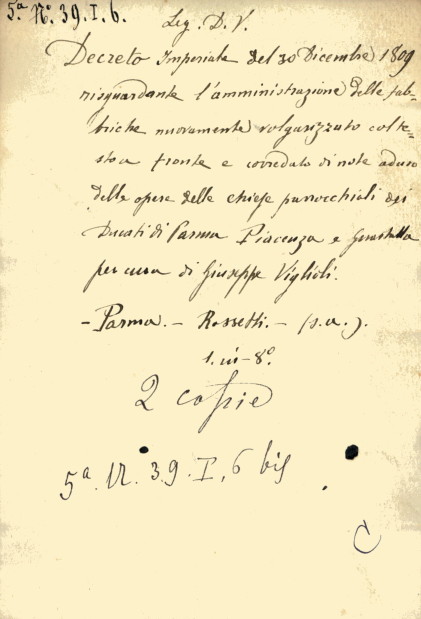 5ª. Nº. 39. I. 6.
Leg. D. V.
Decreto Imperiale del 30 Dicembre 1809
risguardante l'amministrazione delle fab=
briche nuovamente volgarizzato col te=
sto a fronte e corredato di note ad uso
delle opere delle chiese parrocchiali dei
Ducati di Parma Piacenza e Guastalla
per cura di Giuseppe Viglioli.
- Parma. - Rossetti. - (s. a.).
1. in-8º.
2 copie
5ª. N. 39. I, 6 bis
C